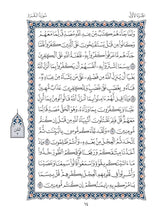 الجزء الأول
سورة البقرة
وَلَمَّا جَآءَهُمْ كِتَٰبٌ مِّنْ عِندِ ٱللَّهِ مُصَدِّقٌ لِّمَا مَعَهُمْ
وَكَانُوا۟ مِن قَبْلُ يَسْتَفْتِحُونَ عَلَى ٱلَّذِينَ كَفَرُوا۟ فَلَمَّا
جَآءَهُم مَّا عَرَفُوا۟ كَفَرُوا۟ بِهِۦ فَلَعْنَةُ ٱللَّهِ عَلَى ٱلْكَٰفِرِينَ ٨٩
بِئْسَمَا ٱشْتَرَوْا۟ بِهِۦٓ أَنفُسَهُمْ أَن يَكْفُرُوا۟ بِمَآ أَنزَلَ ٱللَّهُ
بَغْيًا أَن يُنَزِّلَ ٱللَّهُ مِن فَضْلِهِۦ عَلَىٰ مَن يَشَآءُ مِنْ عِبَادِهِۦ
فَبَآءُو بِغَضَبٍ عَلَىٰ غَضَبٍ وَلِلْكَٰفِرِينَ عَذَابٌ مُّهِينٌ ٩٠
وَإِذَا قِيلَ لَهُمْ ءَامِنُوا۟ بِمَآ أَنزَلَ ٱللَّهُ قَالُوا۟ نُؤْمِنُ بِمَآ
أُنزِلَ عَلَيْنَا وَيَكْفُرُونَ بِمَا وَرَآءَهُۥ وَهُوَ ٱلْحَقُّ مُصَدِّقًا
لِّمَا مَعَهُمْ قُلْ فَلِمَ تَقْتُلُونَ أَنۢبِيَآءَ ٱللَّهِ مِن قَبْلُ إِن كُنتُم
مُّؤْمِنِينَ ٩١ وَلَقَدْ جَآءَكُم مُّوسَىٰ بِٱلْبَيِّنَٰتِ ثُمَّ
ٱتَّخَذْتُمُ ٱلْعِجْلَ مِنۢ بَعْدِهِۦ وَأَنتُمْ ظَٰلِمُونَ ٩٢
وَإِذْ أَخَذْنَا مِيثَٰقَكُمْ وَرَفَعْنَا فَوْقَكُمُ ٱلطُّورَ خُذُوا۟
مَآ ءَاتَيْنَٰكُم بِقُوَّةٍ وَٱسْمَعُوا۟ قَالُوا۟ سَمِعْنَا وَعَصَيْنَا
وَأُشْرِبُوا۟ فِى قُلُوبِهِمُ ٱلْعِجْلَ بِكُفْرِهِمْ قُلْ
بِئْسَمَا يَأْمُرُكُم بِهِۦٓ إِيمَٰنُكُمْ إِن كُنتُم مُّؤْمِنِينَ ٩٣
١٤